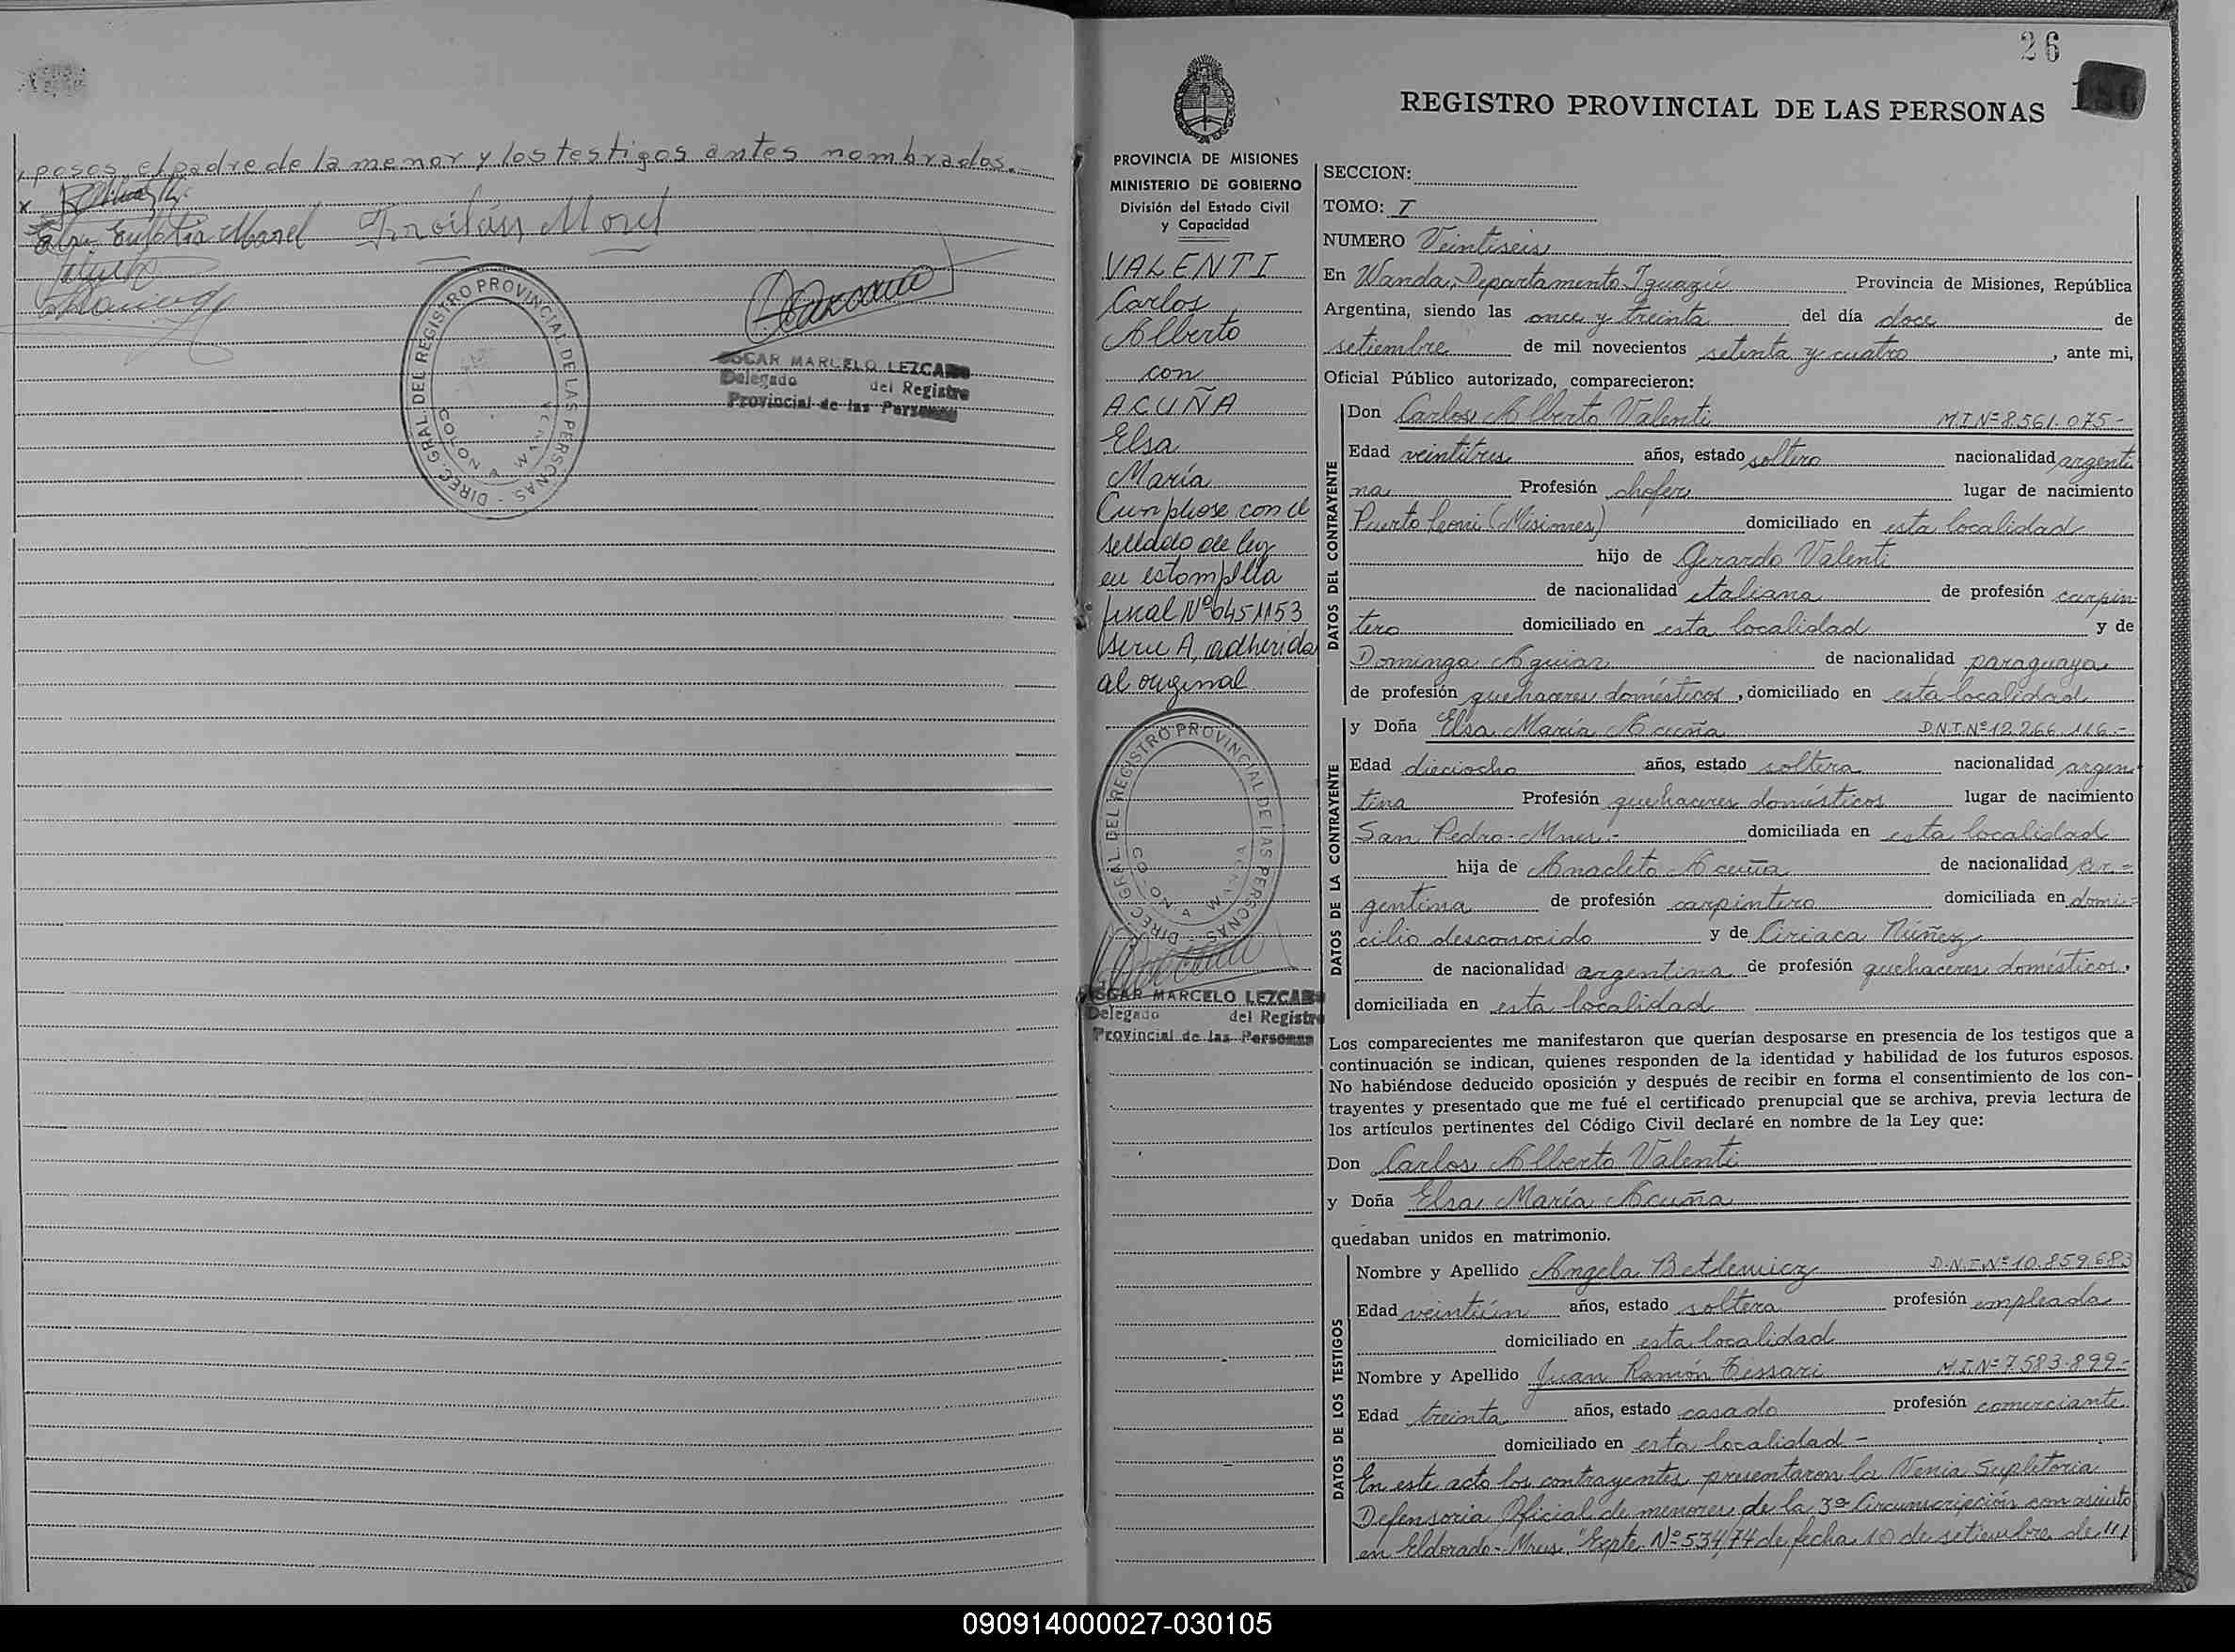 posos, el padre de la menor y los testigos antes nombrados.-
x
Morel Froilán Morel
DIREC. GRAL. DEL REGISTRO PROVINCIAL DE LAS PERSONAS
COLONIA WANDA
OSCAR MARCELO LEZCANO
Delegado del Registro
Provincial de las Personas
26
REGISTRO PROVINCIAL DE LAS PERSONAS
PROVINCIA DE MISIONES
MINISTERIO DE GOBIERNO
División del Estado Civil
y Capacidad
VALENTI
Carlos
Alberto
con
ACUÑA
Elsa
María
Cumpliose con el
sellado de ley
en estampilla
fiscal Nº 0451153
serie A, adherida
al original
DIREC. GRAL. DEL REGISTRO PROVINCIAL DE LAS PERSONAS
COLONIA WANDA
OSCAR MARCELO LEZCANO
Delegado del Registro
Provincial de las Personas
SECCION:
TOMO: I
NUMERO Veintiseis
En Wanda, Departamento Iguazú Provincia de Misiones, República
Argentina, siendo las once y treinta del día doce de
setiembre de mil novecientos setenta y cuatro, ante mi,
Oficial Público autorizado, comparecieron:
DATOS DEL CONTRAYENTE
Don Carlos Alberto Valenti M.I.Nº 8.561.075-
Edad veintitres años, estado soltero nacionalidad argenti
na Profesión chofer lugar de nacimiento
Puerto Leoni (Misiones) domiciliado en esta localidad
hijo de Gerardo Valenti
de nacionalidad italiana de profesión carpin-
tero domiciliado en esta localidad y de
Dominga Aguiar de nacionalidad paraguaya
de profesión quehaceres domésticos, domiciliado en esta localidad
DATOS DE LA CONTRAYENTE
y Doña Elsa María Acuña D.N.I.Nº 12.266.116.-
Edad dieciocho años, estado soltera nacionalidad argen-
tina Profesión quehaceres domésticos lugar de nacimiento
San Pedro-Mnes.- domiciliada en esta localidad
hija de Anacleto Acuña de nacionalidad ar-
gentina de profesión carpintero domiciliada en domi-
cilio desconocido y de Ciriaca Núñez
de nacionalidad argentina de profesión quehaceres domésticos,
domiciliada en esta localidad
Los comparecientes me manifestaron que querían desposarse en presencia de los testigos que a
continuación se indican, quienes responden de la identidad y habilidad de los futuros esposos.
No habiéndose deducido oposición y después de recibir en forma el consentimiento de los con-
trayentes y presentado que me fué el certificado prenupcial que se archiva, previa lectura de
los artículos pertinentes del Código Civil declaré en nombre de la Ley que:
Don Carlos Alberto Valenti
y Doña Elsa María Acuña
quedaban unidos en matrimonio.
DATOS DE LOS TESTIGOS
Nombre y Apellido Angela Betlemicz D.N.I.Nº 10.859.683
Edad veintiún años, estado soltera profesión empleada
domiciliado en esta localidad
Nombre y Apellido Juan Ramón Tissari M.I.Nº 7.583.899-
Edad treinta años, estado casado profesión comerciante
domiciliado en esta localidad-
En este acto los contrayentes presentaron la Venia Supletoria
Defensoria Oficial de menores de la 3ª Circunscripción con asiento
en Eldorado-Mnes, Expte. Nº 534/74 de fecha 10 de setiembre de
090914000027-030105